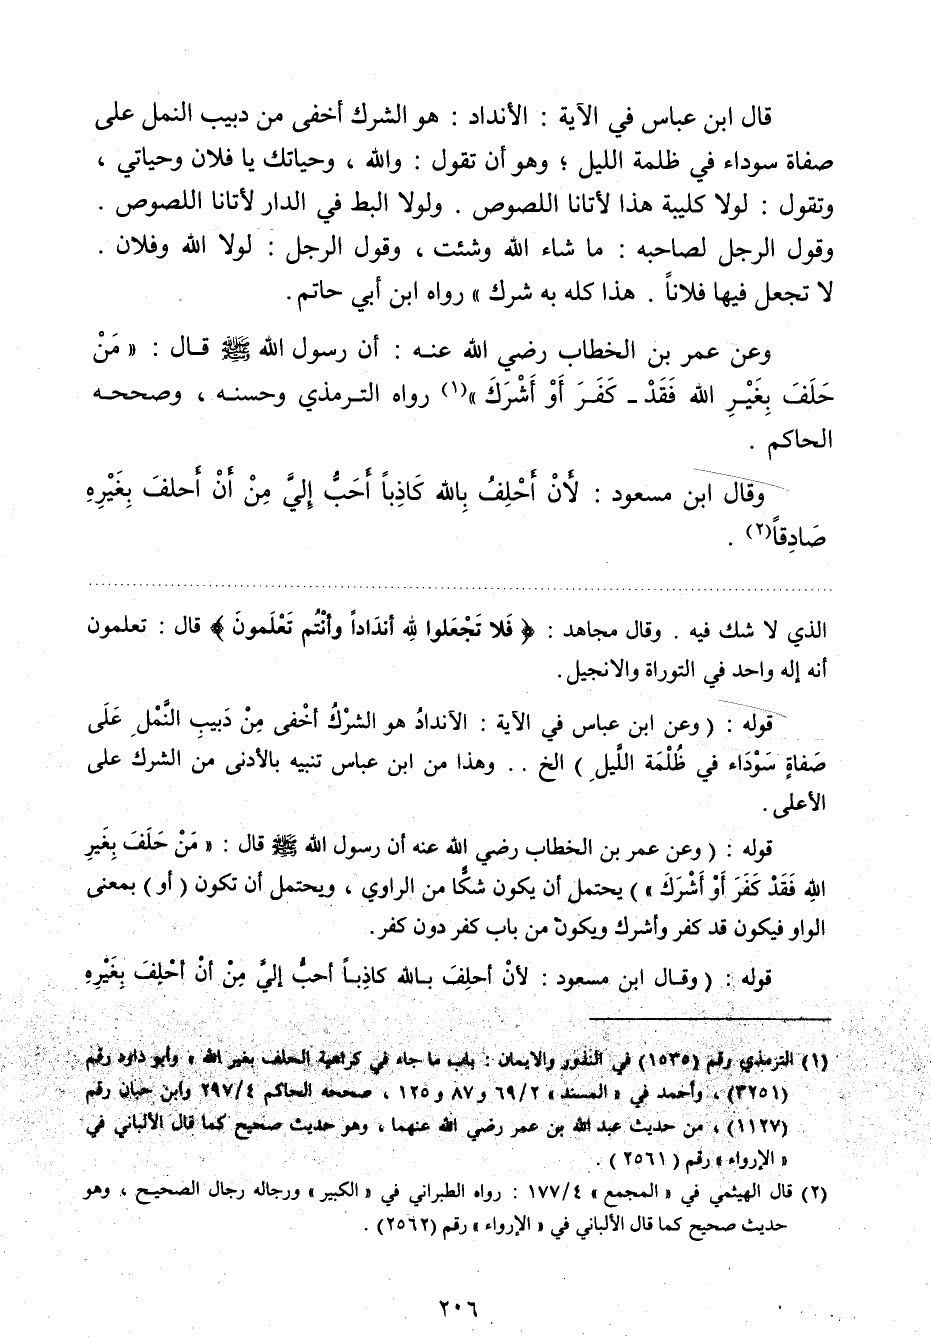 قال ابن عباس في الآية : الأنداد : هو الشرك أخفى من دبيب النمل على
صفاة سوداء في ظلمة الليل ؛ وهو أن تقول : والله ، وحياتك يا فلان وحياتي ،
وتقول : لولا كليبة هذا لأتانا اللصوص . ولولا البط في الدار لأتانا اللصوص .
وقول الرجل لصاحبه : ما شاء الله وشئت ، وقول الرجل : لولا الله وفلان .
لا تجعل فيها فلاناً . هذا كله به شرك » رواه ابن أبي حاتم .
وعن عمر بن الخطاب رضي الله عنه : أن رسول الله ﷺ قال : « مَنْ
حَلَفَ بِغَيْرِ الله فَقَدْ ـ كَفَرَ أَوْ أَشْرَكَ »(١) رواه الترمذي وحسنه ، وصححه
الحاكم .
وقال ابن مسعود : لَأَنْ أَحْلِفُ بِالله كَاذِباً أَحَبُّ إِليَّ مِنْ أَنْ أَحلفَ بِغَيْرِهِ
صَادِقاً(٢) .
الذي لا شك فيه . وقال مجاهد : ﴿ فَلا تَجْعَلوا لِلهِ أندَاداً وأنْتُم تَعْلَمونَ ﴾ قال : تعلمون
أنه إله واحد في التوراة والانجيل .
قوله : ( وعن ابن عباس في الآية : الآندادُ هو الشرْكُ أخْفى مِنْ دَبيبِ النَّمْلِ عَلَى
صَفاةٍ سَوْدَاء في ظُلْمَة اللَّيلِ ) الخ . . وهذا من ابن عباس تنبيه بالأدنى من الشرك على
الأعلى .
قوله : ( وعن عمر بن الخطاب رضي الله عنه أن رسول الله ﷺ قال : « مَنْ حَلَفَ بِغَيرِ
اللهِ فَقَدْ كَفَرَ أَوْ أَشْرَكَ » ) يحتمل أن يكون شكًّا من الراوي ، ويحتمل أن تكون ( أو ) بمعنى
الواو فيكون قد كفر وأشرك ويكون من باب كفر دون كفر .
قوله : ( وقال ابن مسعود : لأنْ أحلِفَ بالله كاذِباً أحبُّ إليَّ مِنْ أنْ أحْلِفَ بِغَيْرِهِ
(١) الترمذي رقم (١٥٣٥) في النذور والايمان : باب ما جاء في كراهية الحلف بغير الله ، وأبو داود رقم
(٣٢٥١) ، وأحمد في « المسند » ٦٩/٢ و ٨٧ و ١٢٥ ، صححه الحاكم ٢٩٧/٤ وابن حبان رقم
(١١٢٧) ، من حديث عبد الله بن عمر رضي الله عنهما ، وهو حديث صحيح كما قال الألباني في
« الإرواء » رقم ( ٢٥٦١ ) .
(٢) قال الهيثمي في « المجمع » ١٧٧/٤ : رواه الطبراني في « الكبير » ورجاله رجال الصحيح ، وهو
حديث صحيح كما قال الألباني في « الإرواء » رقم (٢٥٦٢) .
٢٠٦